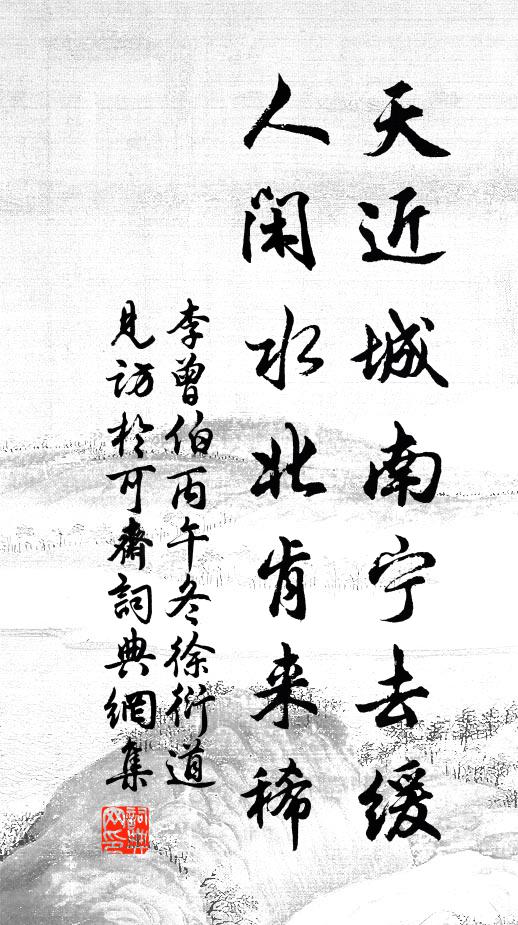 天近城南宁去缓
人闲水北肯来稀
李曾伯丙午冬徐衍道
见访於可齋詞典網集
詞典網印